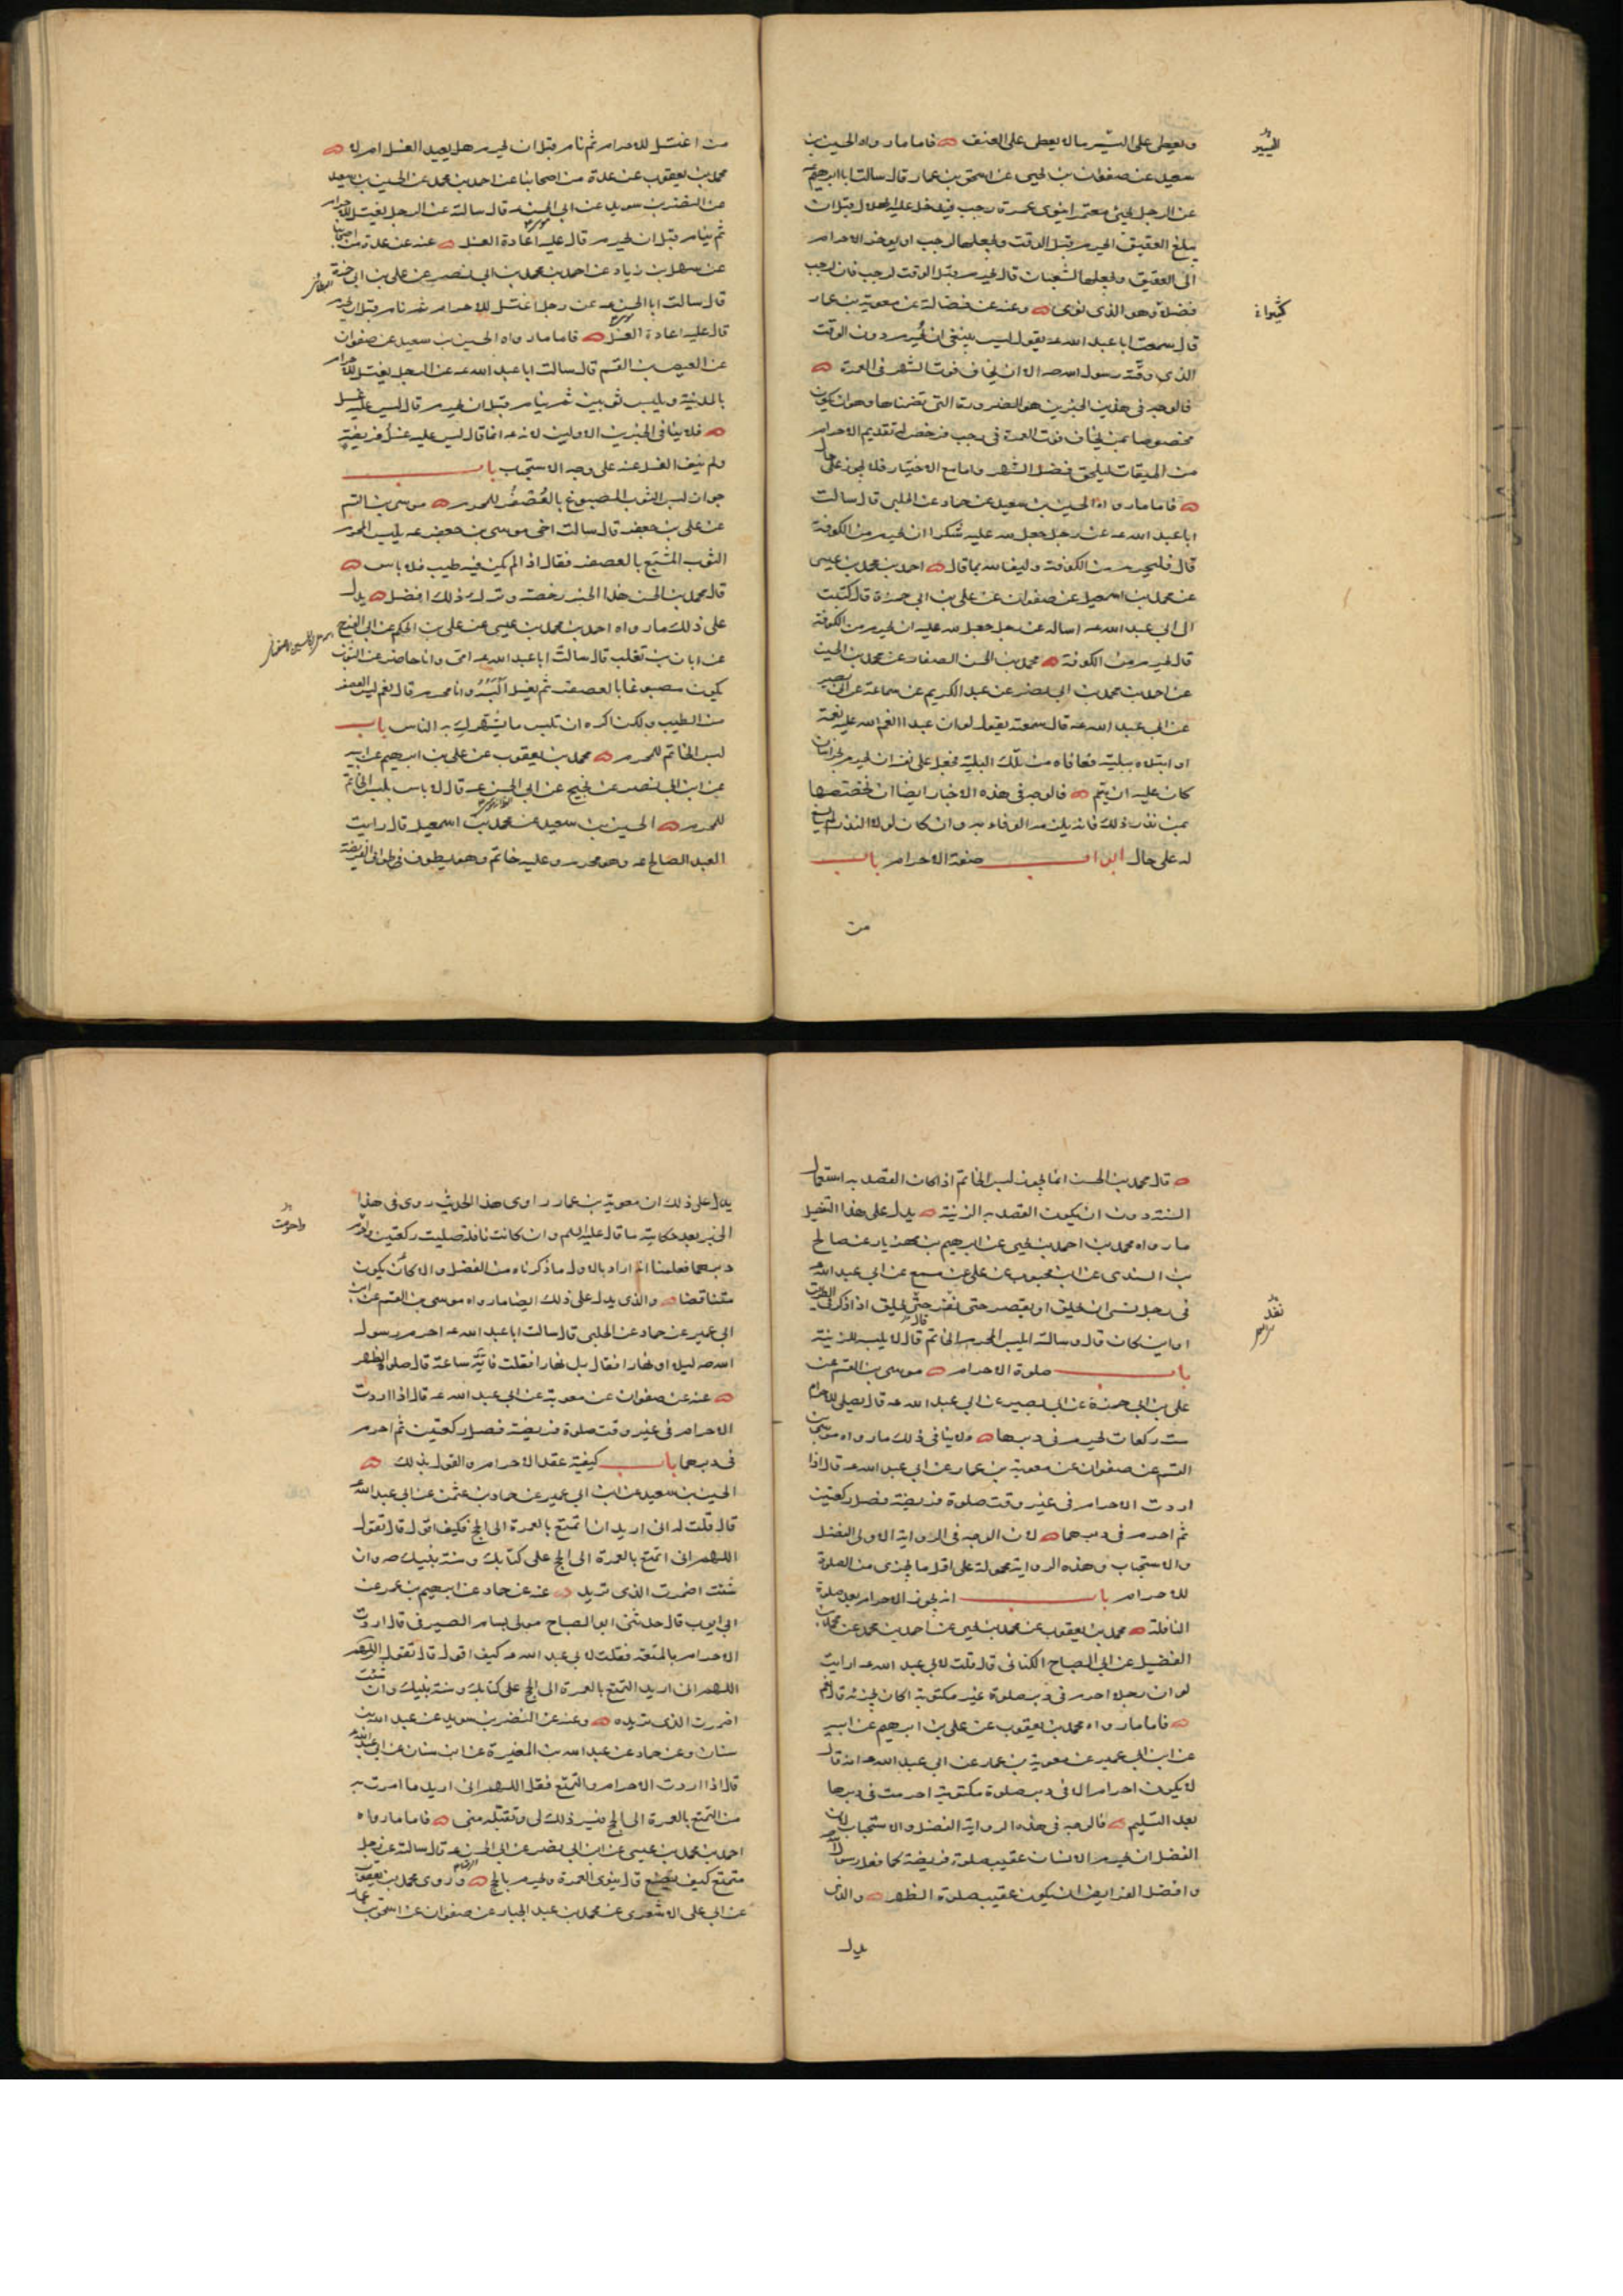 ويعطى على اليسير مالا يعطى على العنف فاما ما رواه الحسين بن
سعيد عن صفوان بن يحيى عن اسحق بن عمار قال سالت ابا ابرهيم ع
عن الرجل يجئ معتمرا ينوى عمرة رجب فيدخل عليه الهلال قبل ان
يبلغ العقيق ايحرم قبل الوقت ويجعلها لرجب او يوخر الاحرام
الى العقيق ويجعلها لشعبان قال يحرم قبل الوقت لرجب فان لرجب
فضلا وهو الذى نوى وعنه عن فضالة عن معوية بن عمار
قال سمعت ابا عبد الله عه يقول ليس ينبغى ان يحرم دون الوقت
الذى وقته رسول الله صه الا ان يخاف فوت الشهر فى العمرة
فالوجه فى هذين الخبرين هو الضرورة التى تضمناها وهو ان يكون
مخصوصا بمن يخاف فوت العمرة فى رجب فرخص له تقديم الاحرام
من الميقات ليلحق فضل الشهر واما مع الاختيار فلا يجوز على حال
فاما ما رواه الحسين بن سعيد عن حماد عن الحلبى قال سالت
ابا عبد الله عه عن رجل جعل لله عليه شكرا ان يحرم من الكوفة
قال فليحرم من الكوفة وليف لله بما قال احمد بن محمد بن عيسى
عن محمد بن اسمعيل عن صفوان عن على بن ابى حمزة قال كتبت
الى ابى عبد الله عه اساله عن رجل جعل لله عليه ان يحرم من الكوفة
قال يحرم من الكوفة محمد بن الحسن الصفار عن محمد بن الحسين
عن احمد بن محمد بن ابى نصر عن عبد الكريم عن سماعة عن ابى بصير
عن ابى عبد الله عه قال سمعته يقول لو ان عبدا انعم الله عليه نعمة
او ابتلاه ببلية فعافاه من تلك البلية فجعل على نفسه ان يحرم بخراسان
كان عليه ان يتم فالوجه فى هذه الاخبار ايضا ان نخصصها
بمن نذر ذلك فانه يلزمه الوفاء به وان كان لولا النذر لم يسغ
له على حال ابواب صفة الاحرام باب
من
اليسير
كثيرا
من اغتسل للاحرام ثم نام قبل ان يحرم هل يعيد الغسل ام لا
محمد بن يعقوب عن عدة من اصحابنا عن احمد بن محمد عن الحسين بن سعيد
عن النضر بن سويد عن ابى الحسن عه قال سالته عن الرجل يغتسل للاحرام
ثم ينام قبل ان يحرم قال عليه اعادة الغسل عنه عن عدة من اصحابنا
عن سهل بن زياد عن احمد بن محمد بن ابى نصر عن على بن ابى حمزة
قال سالت ابا الحسن عه عن رجل اغتسل للاحرام ثم نام قبل ان يحرم
قال عليه اعادة الغسل فاما ما رواه الحسين بن سعيد عن صفوان
عن العيص بن القسم قال سالت ابا عبد الله عه عن الرجل يغتسل للاحرام
بالمدينة ويلبس ثوبين ثم ينام قبل ان يحرم قال ليس عليه غسل
فلا ينافى الخبرين الاولين لانه عه انما قال ليس عليه غسل فريضة
ولم ينف الغسل عنه على وجه الاستحباب باب
جواز لبس الثوب المصبوغ بالعصفر للمحرم موسى بن القسم
عن على بن جعفر قال سالت اخى موسى بن جعفر عه يلبس المحرم
الثوب المشبع بالعصفر فقال اذا لم يكن فيه طيب فلا باس
قال محمد بن الحسن هذا الخبر رخصة وترك ذلك افضل يدل
على ذلك ما رواه احمد بن محمد بن عيسى عن على بن الحكم عن ابى الفرج
عن ابان بن تغلب قال سالت ابا عبد الله عه اخى وانا حاضر عن الثوب
يكون مصبوغا بالعصفر ثم يغسل البسه وانا محرم قال نعم ليس العصفر
من الطيب ولكن اكره ان تلبس ما يشهرك به الناس باب
لبس الخاتم للمحرم محمد بن يعقوب عن على بن ابرهيم عن ابيه
عن ابن ابى نصر عن نجيح عن ابى الحسن عه قال لا باس بلبس الخاتم
للمحرم الحسين بن سعيد عن محمد بن اسمعيل قال رايت
العبد الصالح عه وهو محرم وعليه خاتم وهو يطوف طواف الفريضة
البطائنى
قال محمد بن الحسن انما يجوز لبس الخاتم اذا كان القصد به استعمال
السنة دون ان يكون القصد به الزينة يدل على هذا التفصيل
ما رواه محمد بن احمد بن يحيى عن ابرهيم بن مهزيار عن صالح
بن السندى عن ابن محبوب عن على عن مسمع عن ابى عبد الله ع
فى رجل نسى ان يحلق او يقصر حتى نفر حتى يحلق اذا ذكر فى الطريق
او اين كان قال وسالته ايلبس المحرم الخاتم قال لا يلبسه للزينة
باب صلوة الاحرام موسى بن القسم عن
على بن ابى حمزة عن ابى بصير عن ابى عبد الله عه قال يصلى للاحرام
ست ركعات يحرم فى دبرها ولا ينافى ذلك ما رواه موسى بن
القسم عن صفوان عن معوية بن عمار عن ابى عبد الله عه قال اذا
اردت الاحرام فى غير وقت صلوة فريضة فصل ركعتين
ثم احرم فى دبرهما لان الوجه فى الرواية الاولى الفضل
والاستحباب وهذه الرواية محمولة على اقل ما يجزى من الصلوة
للاحرام باب انه يجوز الاحرام بعد صلوة
النافلة محمد بن يعقوب عن محمد بن يحيى عن احمد بن محمد عن محمد بن
الفضيل عن ابى الصباح الكنانى قال قلت لابى عبد الله عه ارايت
لو ان رجلا احرم فى دبر صلوة غير مكتوبة اكان يجزئه قال نعم
فاما ما رواه محمد بن يعقوب عن على بن ابرهيم عن ابيه
عن ابن ابى عمير عن معوية بن عمار عن ابى عبد الله عه انه قال
لا يكون احرام الا فى دبر صلوة مكتوبة احرمت فى دبرها
بعد التسليم فالوجه فى هذه الرواية الفضل والاستحباب لان
الفضل ان يحرم الانسان عقيب صلوة فريضة كما فعل رسول الله
وافضل الفرايض ان يكون عقيب صلوة الظهر والذى
يدل
نفر
يدل على ذلك ان معوية بن عمار راوى هذا الحديث روى فى هذا
الخبر بعد حكاية ما قال عليه السلم وان كانت نافلة صليت ركعتين واحرم
دبرهما فعلمنا انه اراد بالاول ما ذكرناه من الفضل والا كان يكون
متناقضا والذى يدل على ذلك ايضا ما رواه موسى بن القسم عن ابن
ابى عمير عن حماد عن الحلبى قال سالت ابا عبد الله عه احرم رسول
الله صه ليلا او نهارا فقال بل نهارا فقلت فاية ساعة قال صلوة الظهر
عنه عن صفوان عن معوية عن ابى عبد الله عه قال اذا اردت
الاحرام فى غير وقت صلوة فريضة فصل ركعتين ثم احرم
فى دبرهما باب كيفية عقد الاحرام والقول بذلك
الحسين بن سعيد عن ابن ابى عمير عن حماد بن عثمن عن ابى عبد الله ع
قال قلت له انى اريد ان اتمتع بالعمرة الى الحج فكيف اقول قال تقول
اللهم انى اتمتع بالعمرة الى الحج على كتابك وسنة نبيك صه وان
شئت اضمرت الذى تريد عنه عن حماد عن ابرهيم بن عمر عن
ابى ايوب قال حدثنى ابو الصباح مولى بسام الصيرفى قال اردت
الاحرام بالمتعة فقلت لابى عبد الله عه كيف اقول قال تقول اللهم
اللهم انى اريد التمتع بالعمرة الى الحج على كتابك وسنة نبيك وان شئت
اضمرت الذى تريده وعنه عن النضر بن سويد عن عبد الله بن
سنان وعن حماد عن عبد الله بن المغيرة عن ابن سنان عن ابى عبد الله ع
قال اذا اردت الاحرام والتمتع فقل اللهم انى اريد ما امرت به
من التمتع بالعمرة الى الحج فيسر ذلك لى وتقبله منى فاما ما رواه
احمد بن محمد بن عيسى عن ابن ابى نصر عن ابى الحسن عه قال سالته عن رجل
متمتع كيف يصنع قال ينوى العمرة ويحرم بالحج وروى محمد بن يعقوب
عن ابى على الاشعرى عن محمد بن عبد الجبار عن صفوان عن اسحق بن عمار
واحرمت